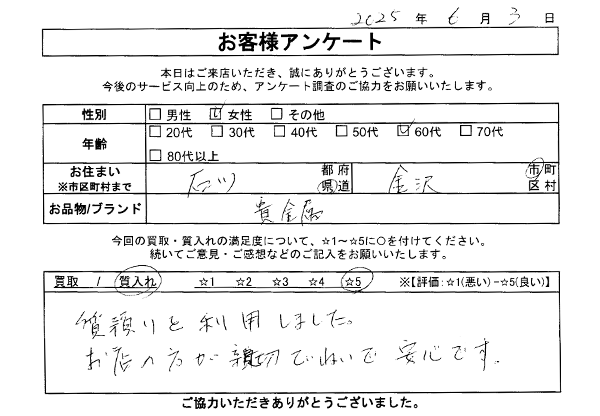 2025 年 6 月 3 日
お客様アンケート
本日はご来店いただき、誠にありがとうございます。
今後のサービス向上のため、アンケート調査のご協力をお願いいたします。
性別 □ 男性 ☑ 女性 □ その他
年齢 □ 20代 □ 30代 □ 40代 □ 50代 ☑ 60代 □ 70代
□ 80代以上
お住まい ※市区町村まで 石川 都 府 県 道 金沢 市 町 区 村
お品物/ブランド 貴金属
今回の買取・質入れの満足度について、☆1～☆5に○を付けてください。
続いてご意見・ご感想などのご記入をお願いいたします。
買取 / 質入れ ☆1 ☆2 ☆3 ☆4 ☆5 ※【評価:☆1(悪い)-☆5(良い)】
質預りを利用しました。
お店の方が親切でいねいで安心です。
ご協力いただきありがとうございました。